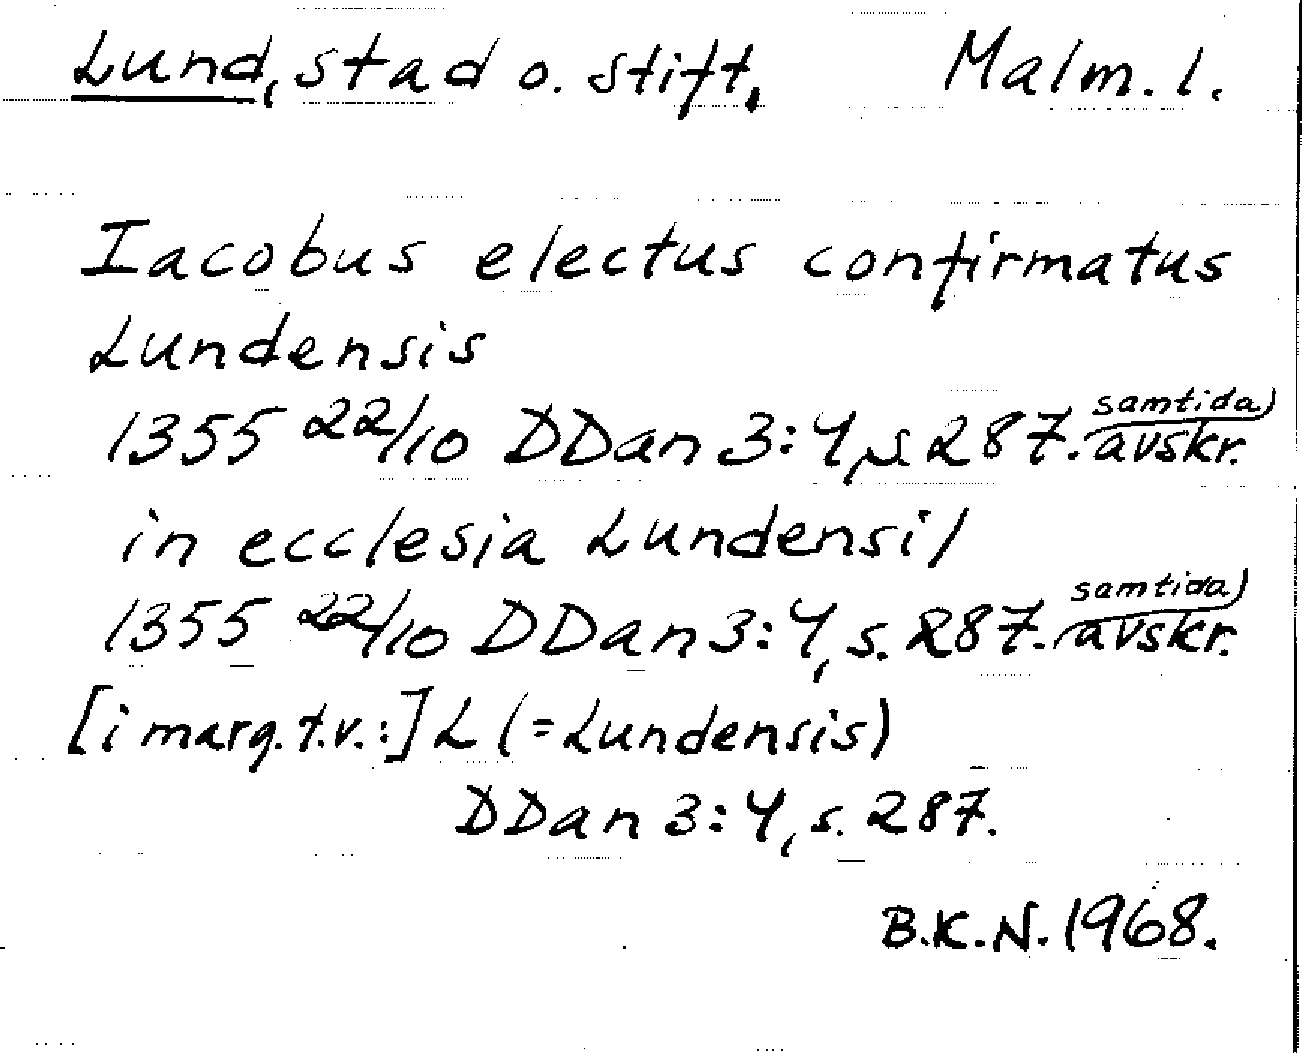 Lund, stad o. stift. Malm. l.
Iacobus electus confirmatus
Lundensis
1355 22/10 DDan 3:4, s 287. samtida avskr.
in ecclesia Lundensi/
1355 22/10 DDan 3:4, s. 287. samtida avskr.
[i marg. t.v.:] L (=Lundensis)
DDan 3:4, s. 287.
B.K.N. 1968.